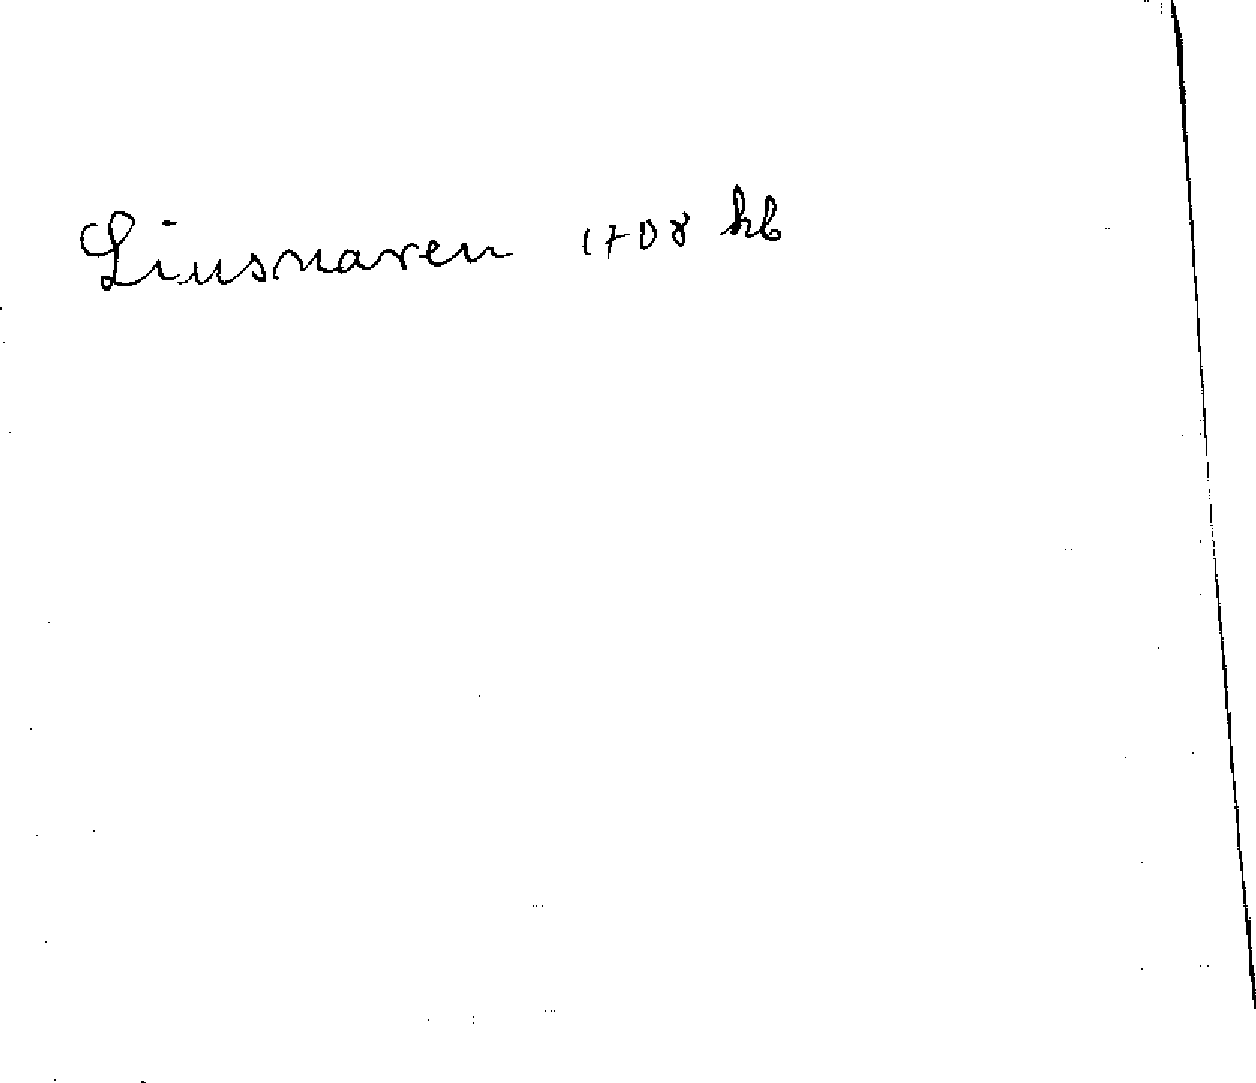 Liusnaren 1708 hb